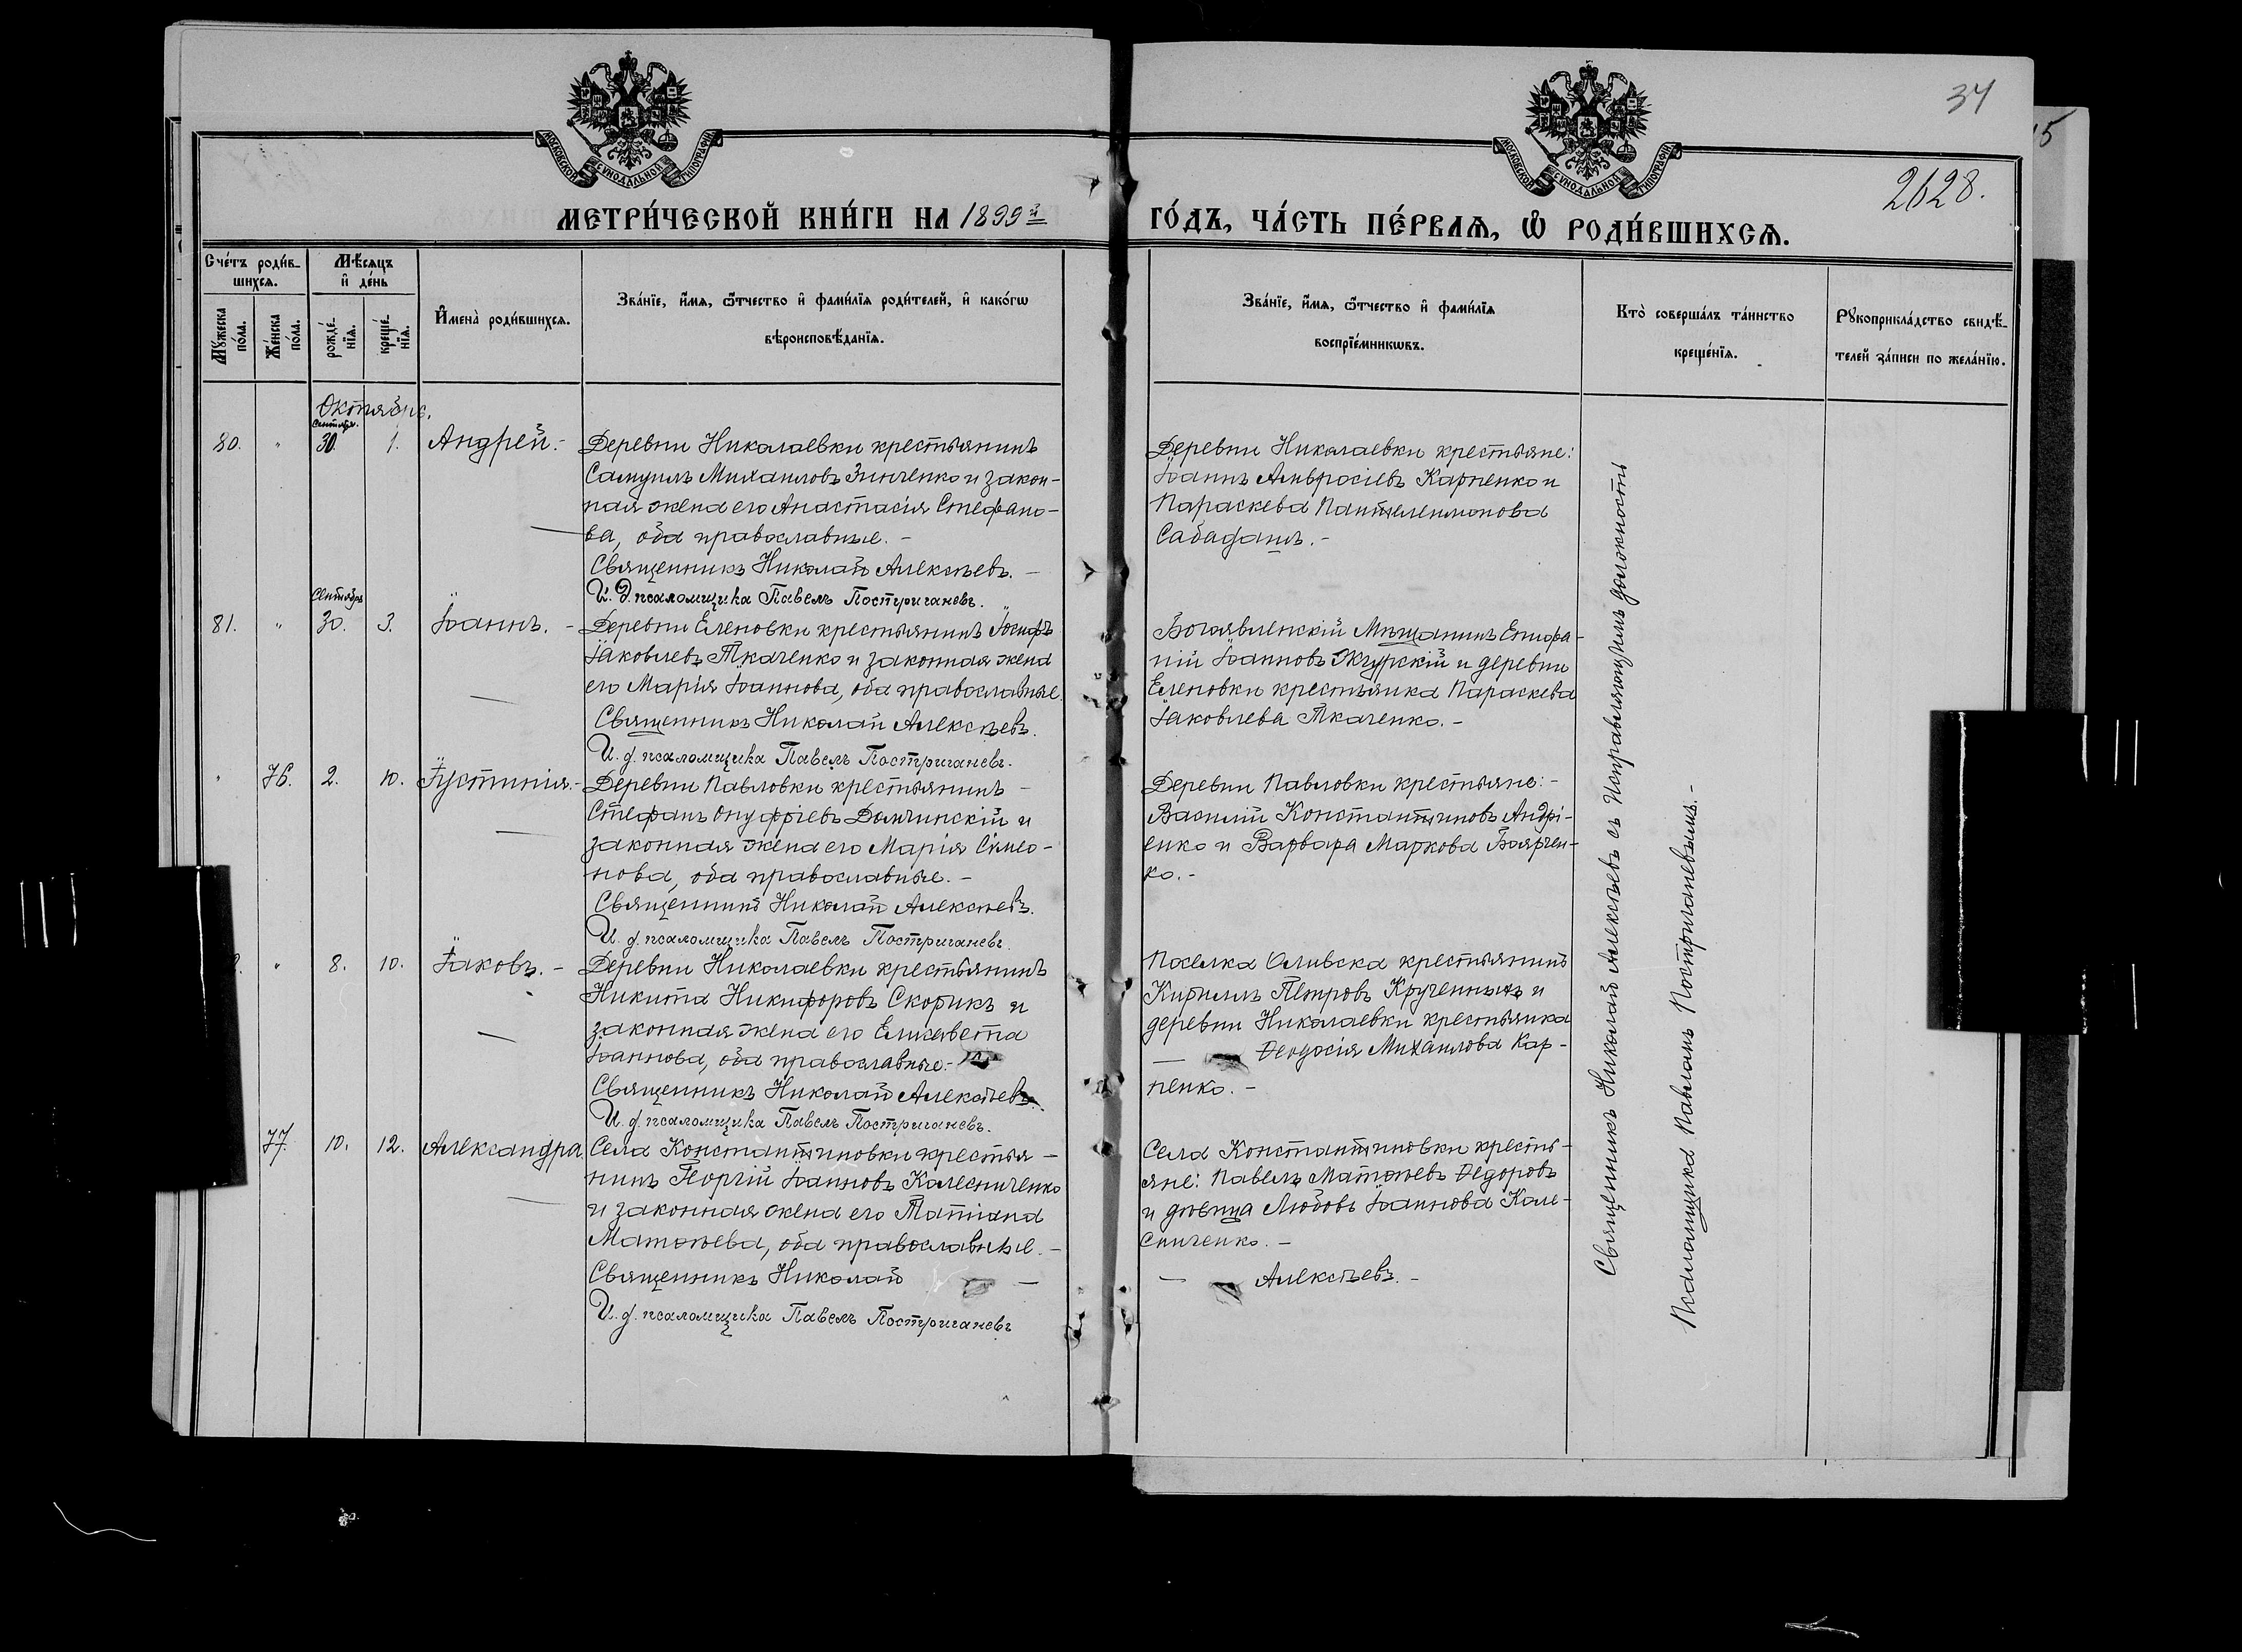 34
15
2628.
МОСКОВСКОЙ СѴНОДАЛЬНОЙ ТИПОГРАФІИ
МОСКОВСКОЙ СѴНОДАЛЬНОЙ ТИПОГРАФІИ
МЕТРИ́ЧЕСКОЙ КНИ́ГИ НА 1899й
ГО́ДЪ, ЧА́СТЬ ПЕ́РВАѦ, Ѽ РОДИ́ВШИХСѦ.
Сче́тъ роди́в-
шихсѧ.
Мꙋ́жеска по́ла.
Же́нска по́ла.
Мѣ́сѧцъ
и҆ де́нь
рожде́-
нїѧ.
креще́-
нїѧ.
И҆мена̀ роди́вшихсѧ.
Зва́нїе, и҆́мѧ, ѻ҆́тчество и҆ фами́лїѧ роди́телей, и҆ како́гѡ
вѣроисповѣ́данїѧ.
Зва́нїе, и҆́мѧ, ѻ҆́тчество и҆ фами́лїѧ
воспрїе́мникѡвъ.
Кто̀ соверша́лъ та́инство
креще́нїѧ.
Рꙋкоприкла́дство свидѣ́-
телей за́писи по жела́нїю.
Октябрь.
Сентября.
80. " 30. 1. Андрей. - Деревни Николаевки крестьянинъ
Самуилъ Михаиловъ Зинченко и закон-
ная жена его Анастасія Стефано-
ва, оба православные. -
Священникъ Николай Алексѣевъ. -
И. д. псаломщика Павелъ Постригачевъ.
Деревни Николаевки крестьяне:
Іоаннъ Амвросіевъ Карпенко и
Параскева Пантелеимонова
Сабадашъ. -
Сентября
81. " 30. 3. Іоаннъ. - Деревни Еленовки крестьянинъ Іосифъ
Іаковлевъ Ткаченко и законная жена
его Марія Іоаннова, оба православные.
Священникъ Николай Алексѣевъ.
И. д. псаломщика Павелъ Постригачевъ.
Богоявленскій Мѣщанинъ Епифа-
ній Іоанновъ Жгурскій и деревни
Еленовки крестьянка Параскева
Іаковлева Ткаченко. -
" 76. 2. 10. Іустинія. - Деревни Павловки крестьянинъ -
Стефанъ Онуфріевъ Домчинскій и
законная жена его Марія Симео-
нова, оба православные. -
Священникъ Николай Алексѣевъ.
И. д. псаломщика Павелъ Постригачевъ.
Деревни Павловки крестьяне: -
Василій Константиновъ Андрі-
енко и Варвара Маркова Боярчен-
ко. -
" 8. 10. Іаковъ. - Деревни Николаевки крестьянинъ
Никита Никифоровъ Скорикъ и
законная жена его Елисавета
Іоаннова, оба православные. -
Священникъ Николай Алексѣевъ.
И. д. псаломщика Павелъ Постригачевъ.
Поселка Оливска крестьянинъ
Кириллъ Петровъ Крученныхъ и
деревни Николаевки крестьянка
Ѳеодосія Михаилова Кар-
пенко. -
77. 10. 12. Александра Села Константиновки крестья-
нинъ Георгій Іоанновъ Калесниченко
и законная жена его Татіана
Матѳѣева, оба православные. -
Священникъ Николай -
И. д. псаломщика Павелъ Постригачевъ
Села Константиновки кресть-
яне: Павелъ Матѳѣевъ Ѳедоровъ
и дѣвица Любовь Іоаннова Кале-
сниченко. -
- Алексѣевъ. -
Священникъ Николай Алексѣевъ съ Исправляющимъ должность
Псаломщика Павломъ Постригачевымъ. -